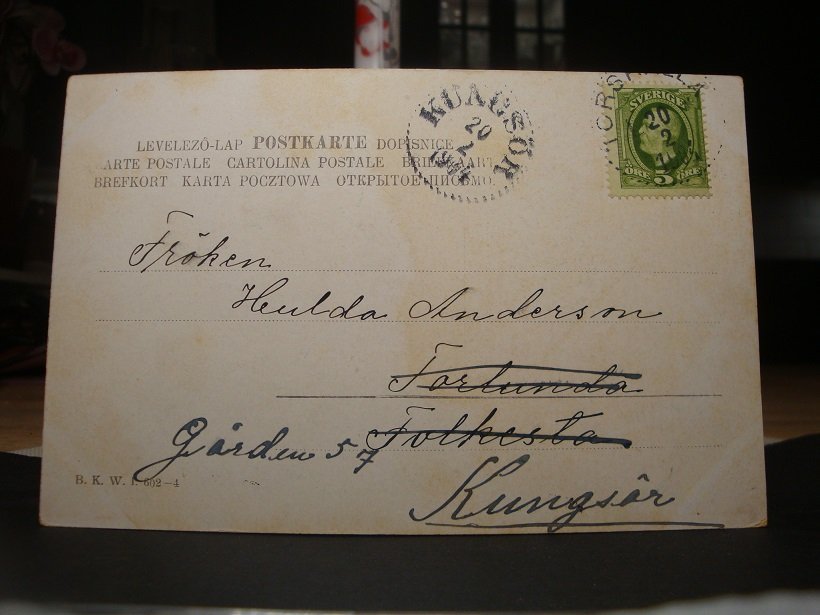 LEVELEZŐ-LAP POSTKARTE DOPISNICE
KARTE POSTALE CARTOLINA POSTALE BRIEFKAART
BREFKORT KARTA POCZTOWA ОТКРЫТОЕ ПИСЬМО
KUNGSÖR
20
2
SVERIGE
20
2
11
ÖRE 5 ÖRE
Fröken
Hulda Anderson
Forlunda
Folkesta
Gården 57
Kungsör
B. K. W. I. 602-4